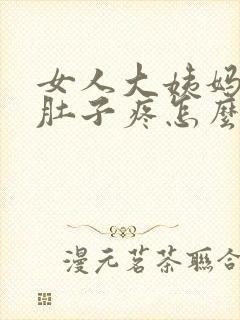 女人大姨妈
肚子疼怎麼
漫元茗茶聯合